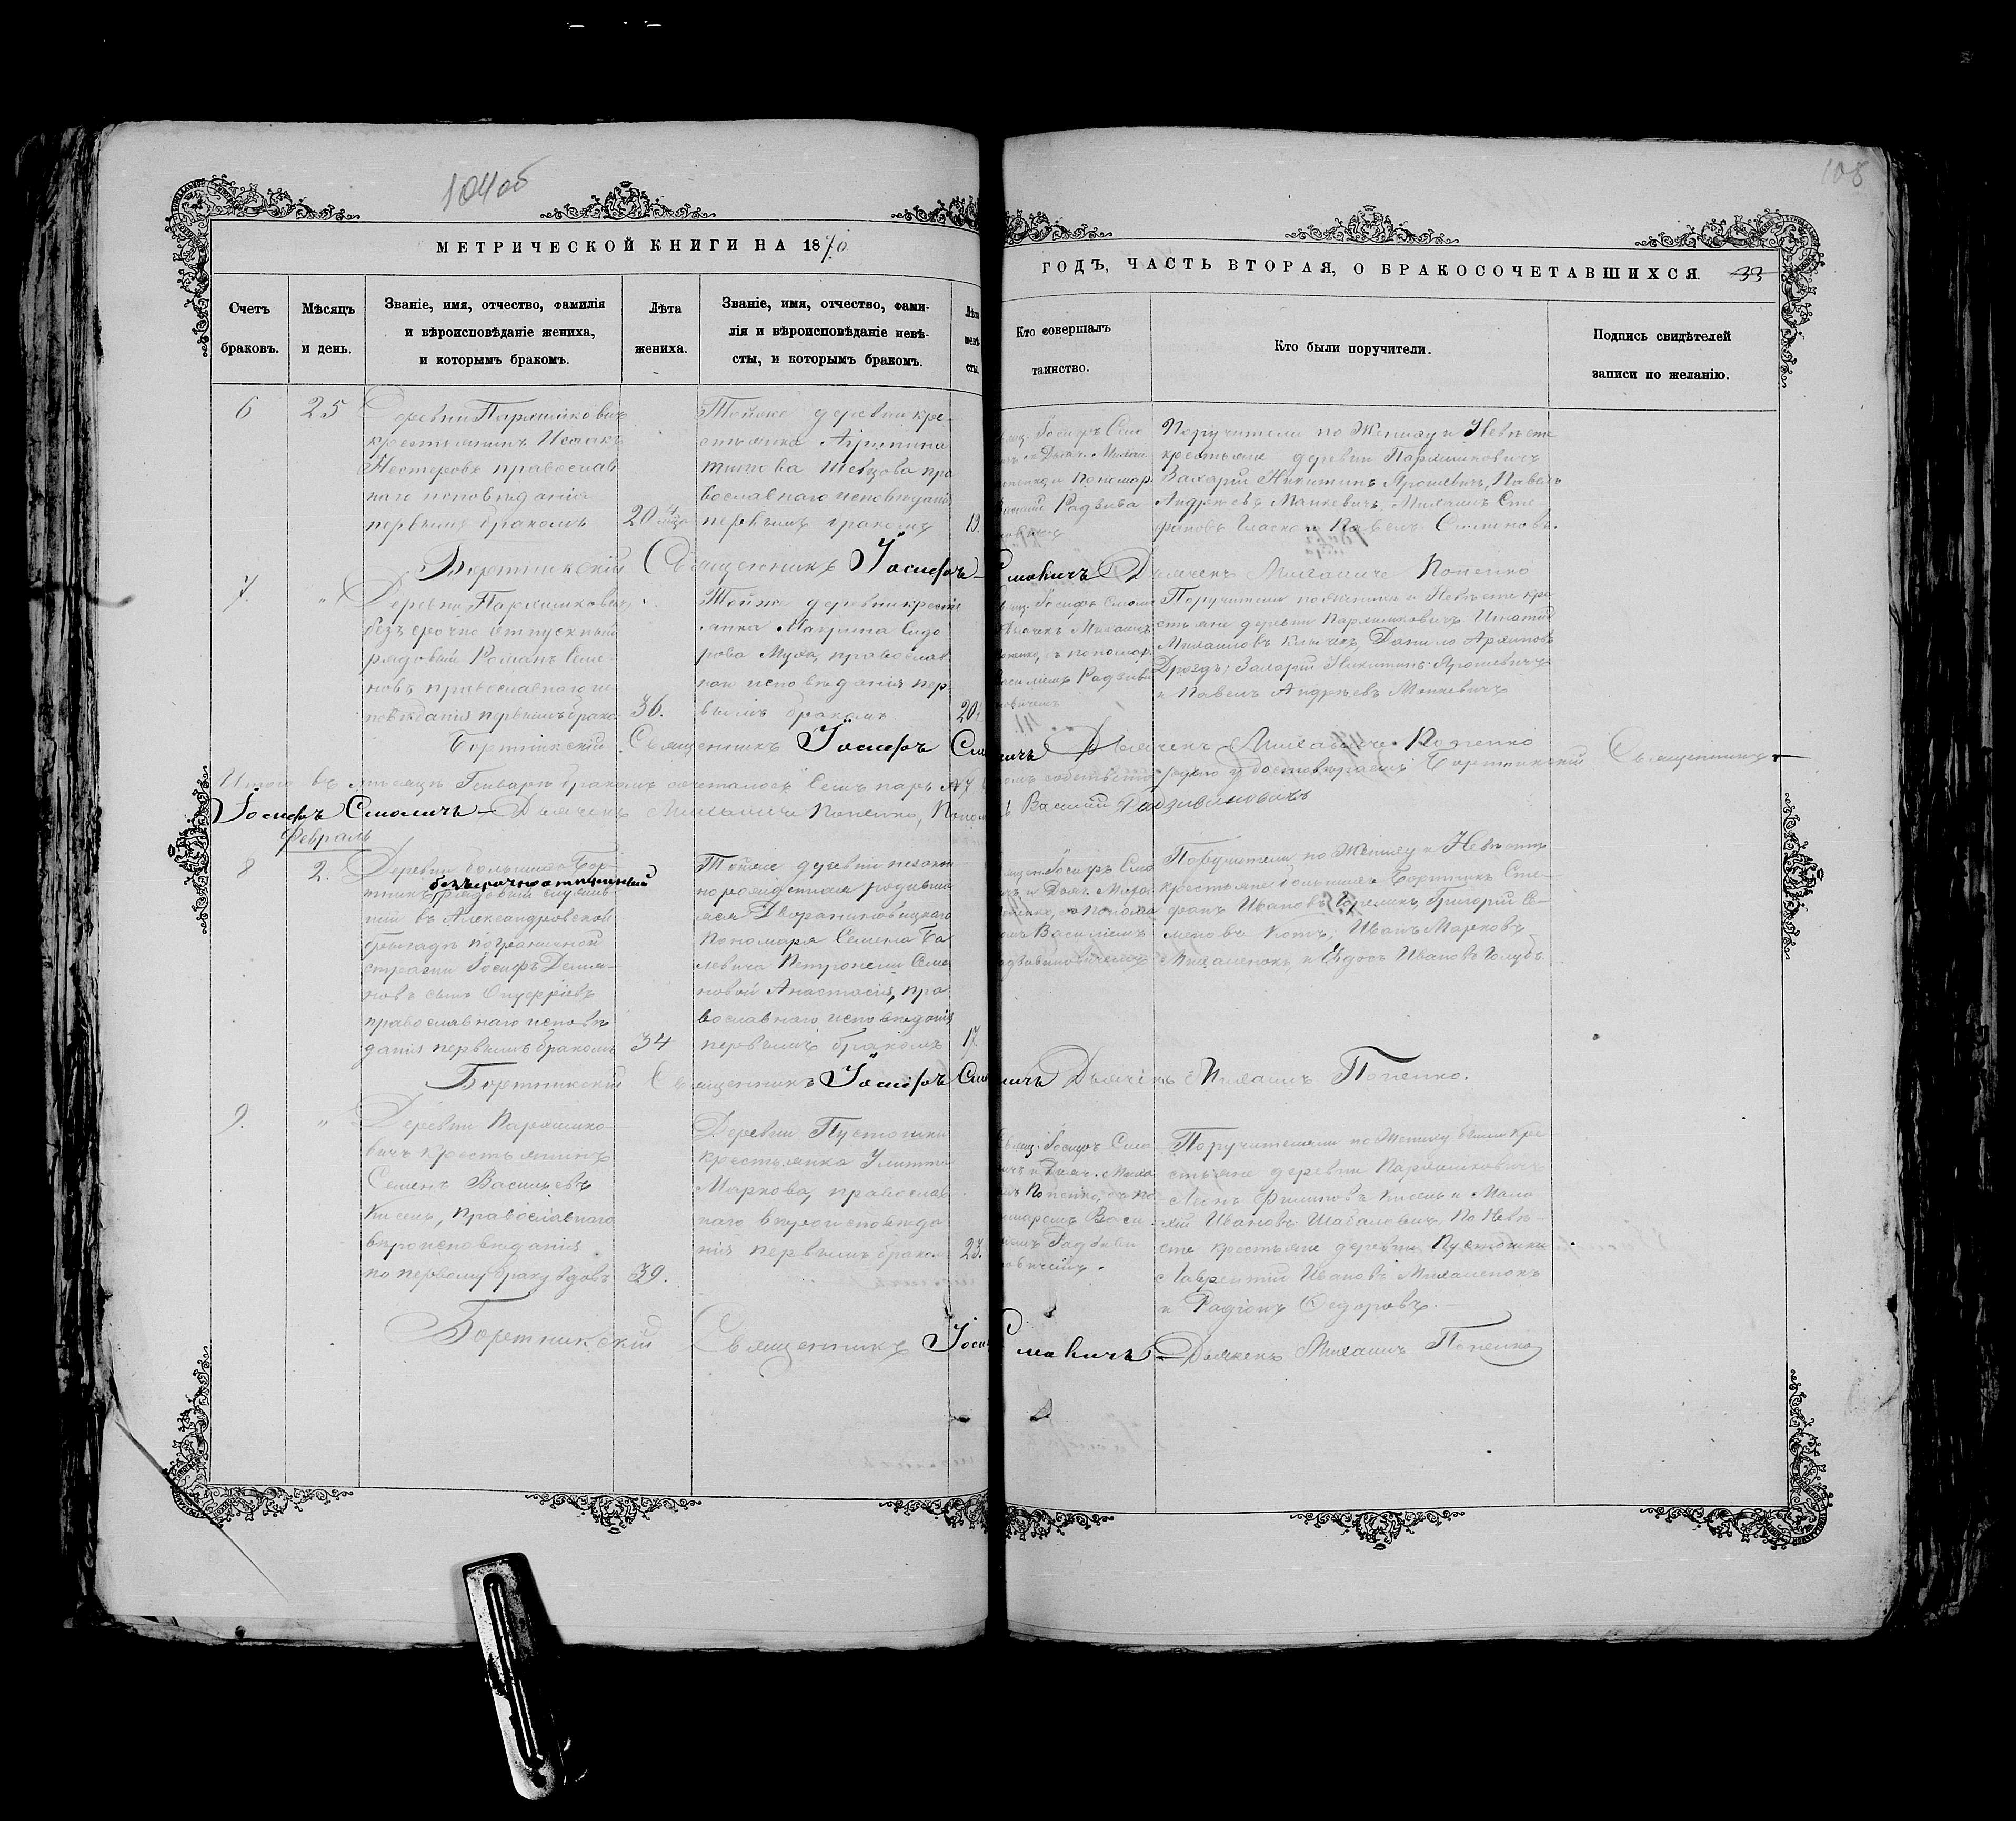 104об
108
МЕТРИЧЕСКОЙ КНИГИ НА 1870
ГОДЪ, ЧАСТЬ ВТОРАЯ, О БРАКОСОЧЕТАВШИХСЯ 33
Счетъ
браковъ.
Мѣсяцъ
и день.
Званіе, имя, отчество, фамилія
и вѣроисповѣданіе жениха,
и которымъ бракомъ.
Лѣта
жениха.
Званіе, имя, отчество, фами-
лія и вѣроисповѣданіе невѣ-
сты, и которымъ бракомъ.
Лѣта
невѣ
сты.
Кто совершалъ
таинство.
Кто были поручители.
Подпись свидѣтелей
записи по желанію.
6
25
Деревни Пархимковичъ
крестьянинъ Исаакъ
Нестеровъ православ
наго исповѣданія
первымъ бракомъ
20
Тойже деревни кре
стьянка Агрипина
Титова Шевцова пра
вославнаго исповѣданія
первымъ бракомъ
19.
Іосифъ Смо
и Дьяч. Михаи
Пономар
Радзива
Поручители по Жениху и Невѣсте
крестьяне деревни Пархимковичъ
Захарій Никитинъ Ярошевичъ, Павелъ
Андреевъ Манкевичъ, Михаилъ Сте
фановъ и Павелъ Симоновъ.
Бортникскій Священникъ Іосифъ Смоличъ Дьячекъ Михаилъ Попенко
7.
"
Деревни Пархимковичъ
безсрочно отпускный
рядовый Романъ Семе-
новъ православнаго ис-
повѣданія первымъ брако
36.
Тойже деревни кресть
янка Макрина Сидо
рова Муха, православ
наго исповѣданія пер
вымъ бракомъ.
20.
Іосифъ Смоли
Дьячекъ Михаилъ
съ пономар.
Василіемъ Радзиви
новичемъ
Поручители по жениху и Невѣсте кре
стьяне деревни Пархимковичъ Игнатій
Михаиловъ Клычекъ, Данило Архиповъ
Дроздъ, Захарій Никитинъ Ярошевичъ
и Павелъ Андреевъ Манкевичъ
Бортникскій Священникъ Іосифъ Смоличъ Дьячекъ Михаилъ Попенко
Итого въ мѣсяцѣ Генварѣ бракомъ сочеталось семь паръ №7 удостовѣряемъ Бортникскій Священникъ
Іосифъ Смоличъ — Дьячекъ Михаилъ Попенко, Василій Радзивиновичъ
Февраль
8
2.
Деревни большихъ Бор-
безсрочноотпускный
тникъ рядовый служив
шій въ Александровской
бригадѣ пограничной
стражи Іосифъ Демья-
новъ сынъ Онуфріевъ
православнаго исповѣ
данія первымъ бракомъ
34
Тойже деревни незакон
норожденная родивша
яся
Пономаря Семена Ба
левича Петронели Семе
новой Анастасія, пра
вославнаго исповѣданія
первымъ бракомъ
17.
Іосифъ Смо
и Дьяч. Миха
Попенко, съ Понома
Василіемъ
Поручители по Жениху и Невѣсте
крестьяне большихъ Бортникъ Сте-
фанъ Ивановъ Гореликъ, Григорій Се-
меновъ Котъ, Иванъ Марковъ
Михаленокъ, и Ивановъ Голубъ.
Бортникскій Священникъ Іосифъ Смоличъ Дьячекъ Михаилъ Попенко.
9.
"
Деревни Пархимко-
вичъ крестьянинъ
Семенъ Васильевъ
Кисель, православнаго
вѣроисповѣданія
по первому браку вдовъ
39.
Деревни Пустошки
крестьянка Улита
Маркова, православ-
наго вѣроисповѣда
нія первымъ браком
23.
Свящ. Іосифъ Смо
личъ и Дьяч. Миха
илъ Попенко, съ по
номаремъ Васи
ліемъ Радзиви
новичемъ.
Поручителями по Жениху были кре
стьяне деревни Пархимковичъ
Леонъ Филиповъ Кисель и Мала
хій Ивановъ Шабаловичъ, По Невѣ-
сте крестьяне деревни Пустошки
Лаврентій Ивановъ Михаленокъ
и Радіонъ Ѳедоровъ.
Бортникскій Священникъ Іосифъ Смоличъ — Дьячекъ Михаилъ Попенко